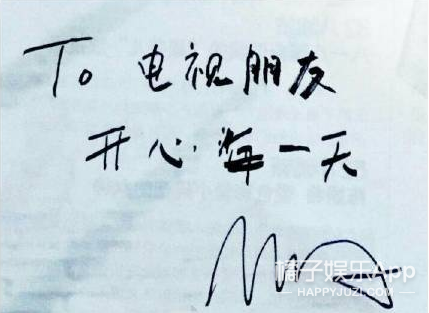 To 电视朋友
开心每一天
橘子娱乐App
HAPPYJUZI.COM